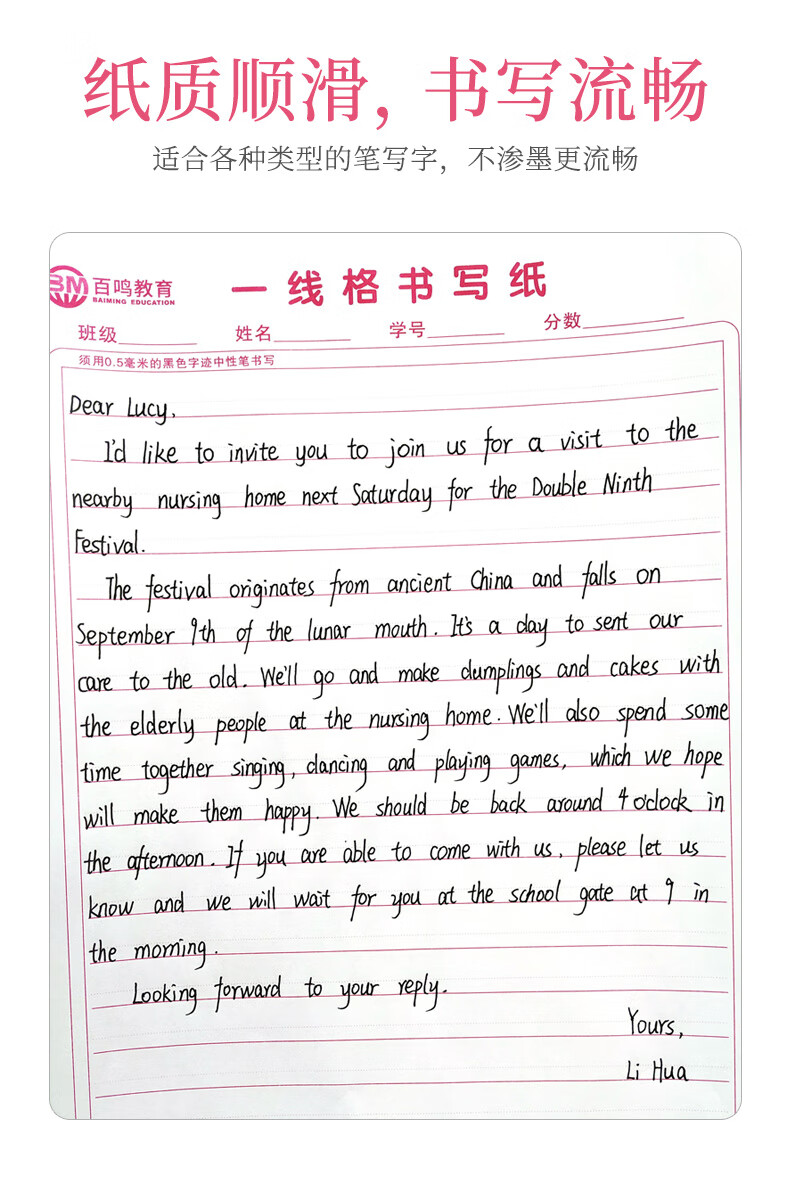 纸质顺滑，书写流畅
适合各种类型的笔写字，不渗墨更流畅
BM 百鸣教育
BAIMING EDUCATION
一线格书写纸
班级 姓名 学号 分数
须用0.5毫米的黑色字迹中性笔书写
Dear Lucy,
I'd like to invite you to join us for a visit to the
nearby nursing home next Saturday for the Double Ninth
Festival.
The festival originates from ancient China and falls on
September 9th of the lunar mouth. It's a day to sent our
care to the old. We'll go and make dumplings and cakes with
the elderly people at the nursing home. We'll also spend some
time together singing, dancing and playing games, which we hope
will make them happy. We should be back around 4 o'clock in
the afternoon. If you are able to come with us, please let us
know and we will wait for you at the school gate at 9 in
the morning.
Looking forward to your reply.
Yours,
Li Hua